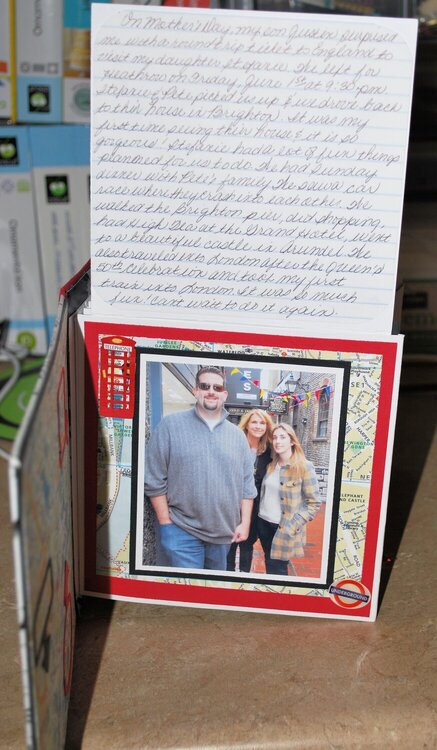 On Mother's Day, my son Justin surprised
me with a round trip ticket to England to
visit my daughter Stefanie. We left for
Heathrow on Friday, June 1st at 9:30 pm.
Stefanie & Pete picked us up & we drove back
to their house in Brighton. It was my
first time seeing their house & it is so
gorgeous! Stefanie had a lot of fun things
planned for us to do. We had Sunday
dinner with Pete's family. We saw a car
race where they crash into each other. We
walked the Brighton pier, did shopping,
had High Tea at the Grand Hotel, went
to a beautiful castle in Arundel. We
also traveled into London after the Queen's
60th celebration and took my first
train into London. It was so much
fun! Can't wait to do it again.
TELEPHONE
JUBILEE
GARDENS
SET
NE
ELEPHANT
AND CASTLE
UNDERGROUND